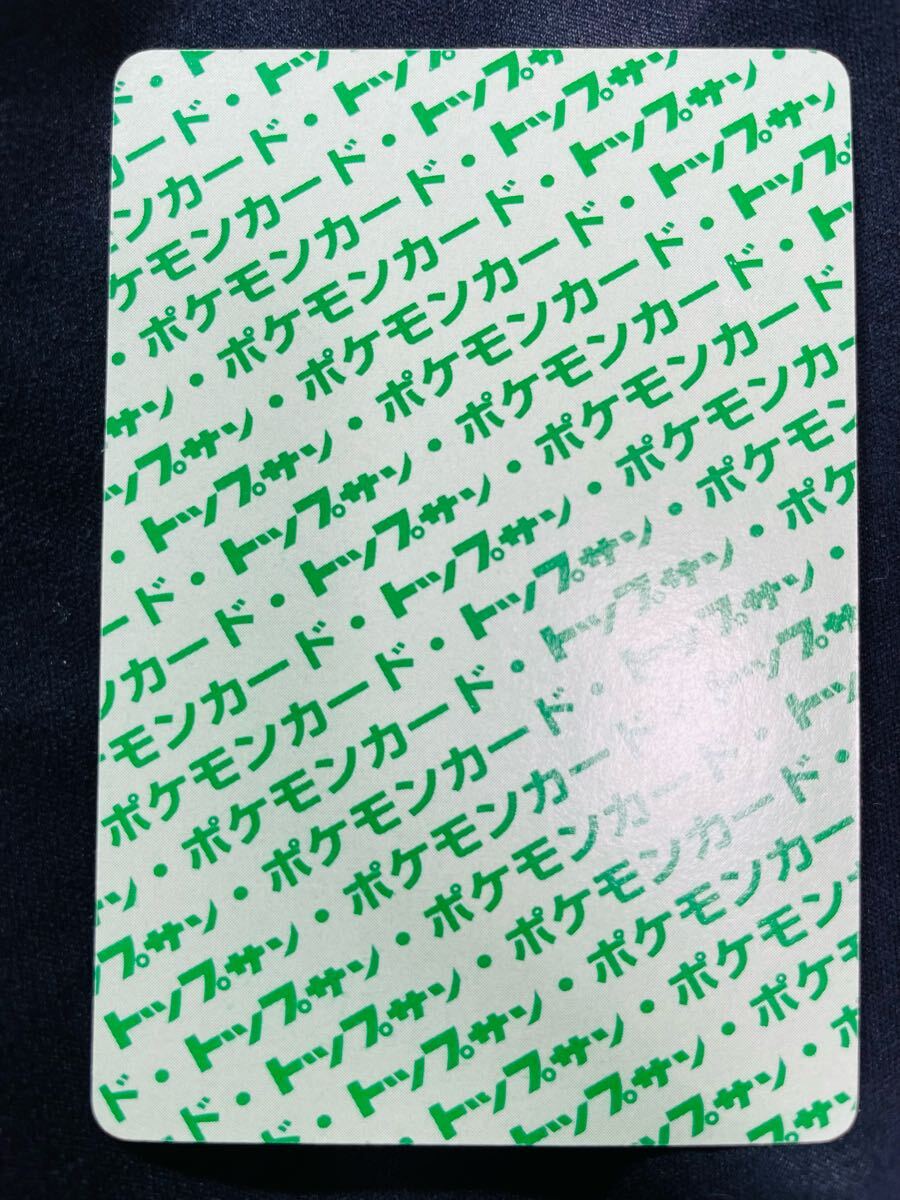 ド・ト
カード・トッ
ンカード・トップ
ケモンカード・トップサ
・ポケモンカード・トップサン・
サン・ポケモンカード・トップサン
ップサン・ポケモンカード・トップサン
・トップサン・ポケモンカード・トップ
ード・トップサン・ポケモンカード・ト
ンカード・トップサン・ポケモンカード
モンカード・トップサン・ポケモンカー
ポケモンカード・トップサン・ポケモン
ン・ポケモンカード・トップサン・ポケ
プサン・ポケモンカード・トップサン・
トップサン・ポケモンカード・トップサ
ド・トップサン・ポケモンカード・トッ
ド・トップサン・ポケモンカード・
ド・トップサン・ポケモンカー
・トップサン・ポケモン
トップサン・ポケ
ップサン・ポ
トッ